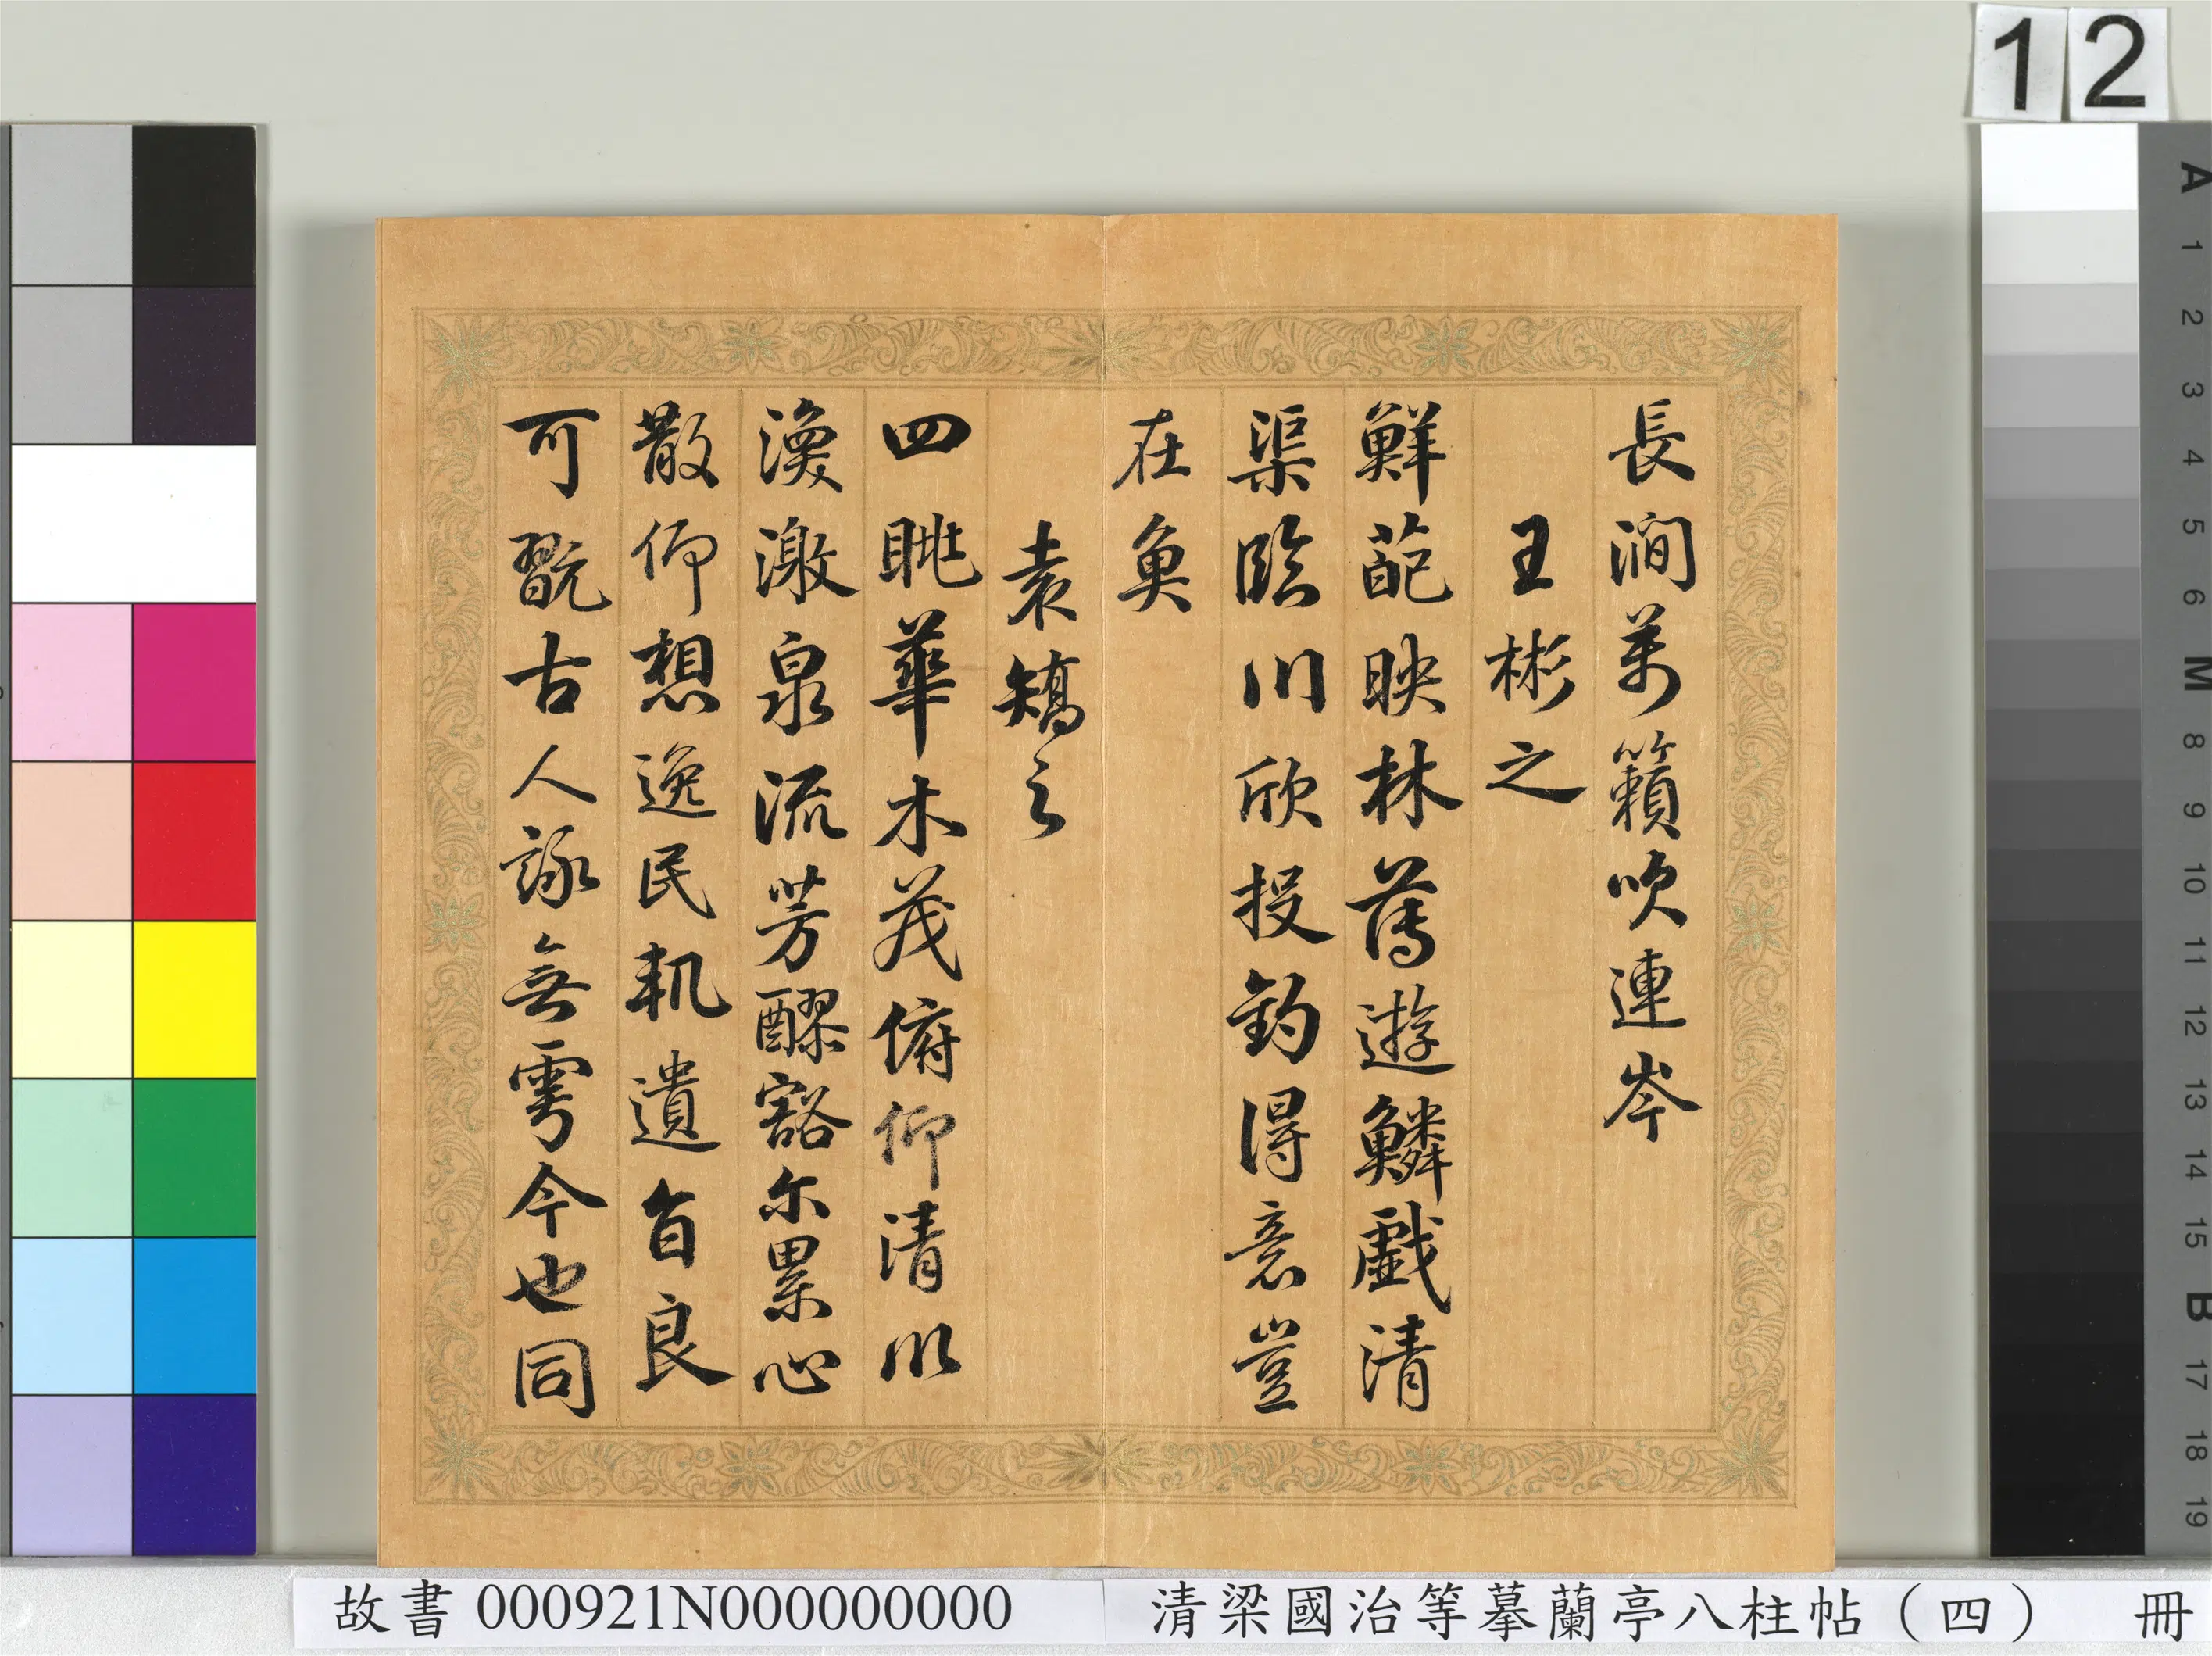 12
長澗萬籟吹連岑
王彬之
鮮葩映林薄遊鱗戲清
渠臨川欣投釣得意豈
在魚
袁矯之
四眺華木茂俯仰清川
渙激泉流芳醪豁尔累心
散仰想逸民軌遺音良
可翫古人詠無雩今也同
A 1 2 3 4 5 6 M 8 9 10 11 12 13 14 15 B 17 18 19
故書 000921N000000000 清梁國治等摹蘭亭八柱帖（四） 冊